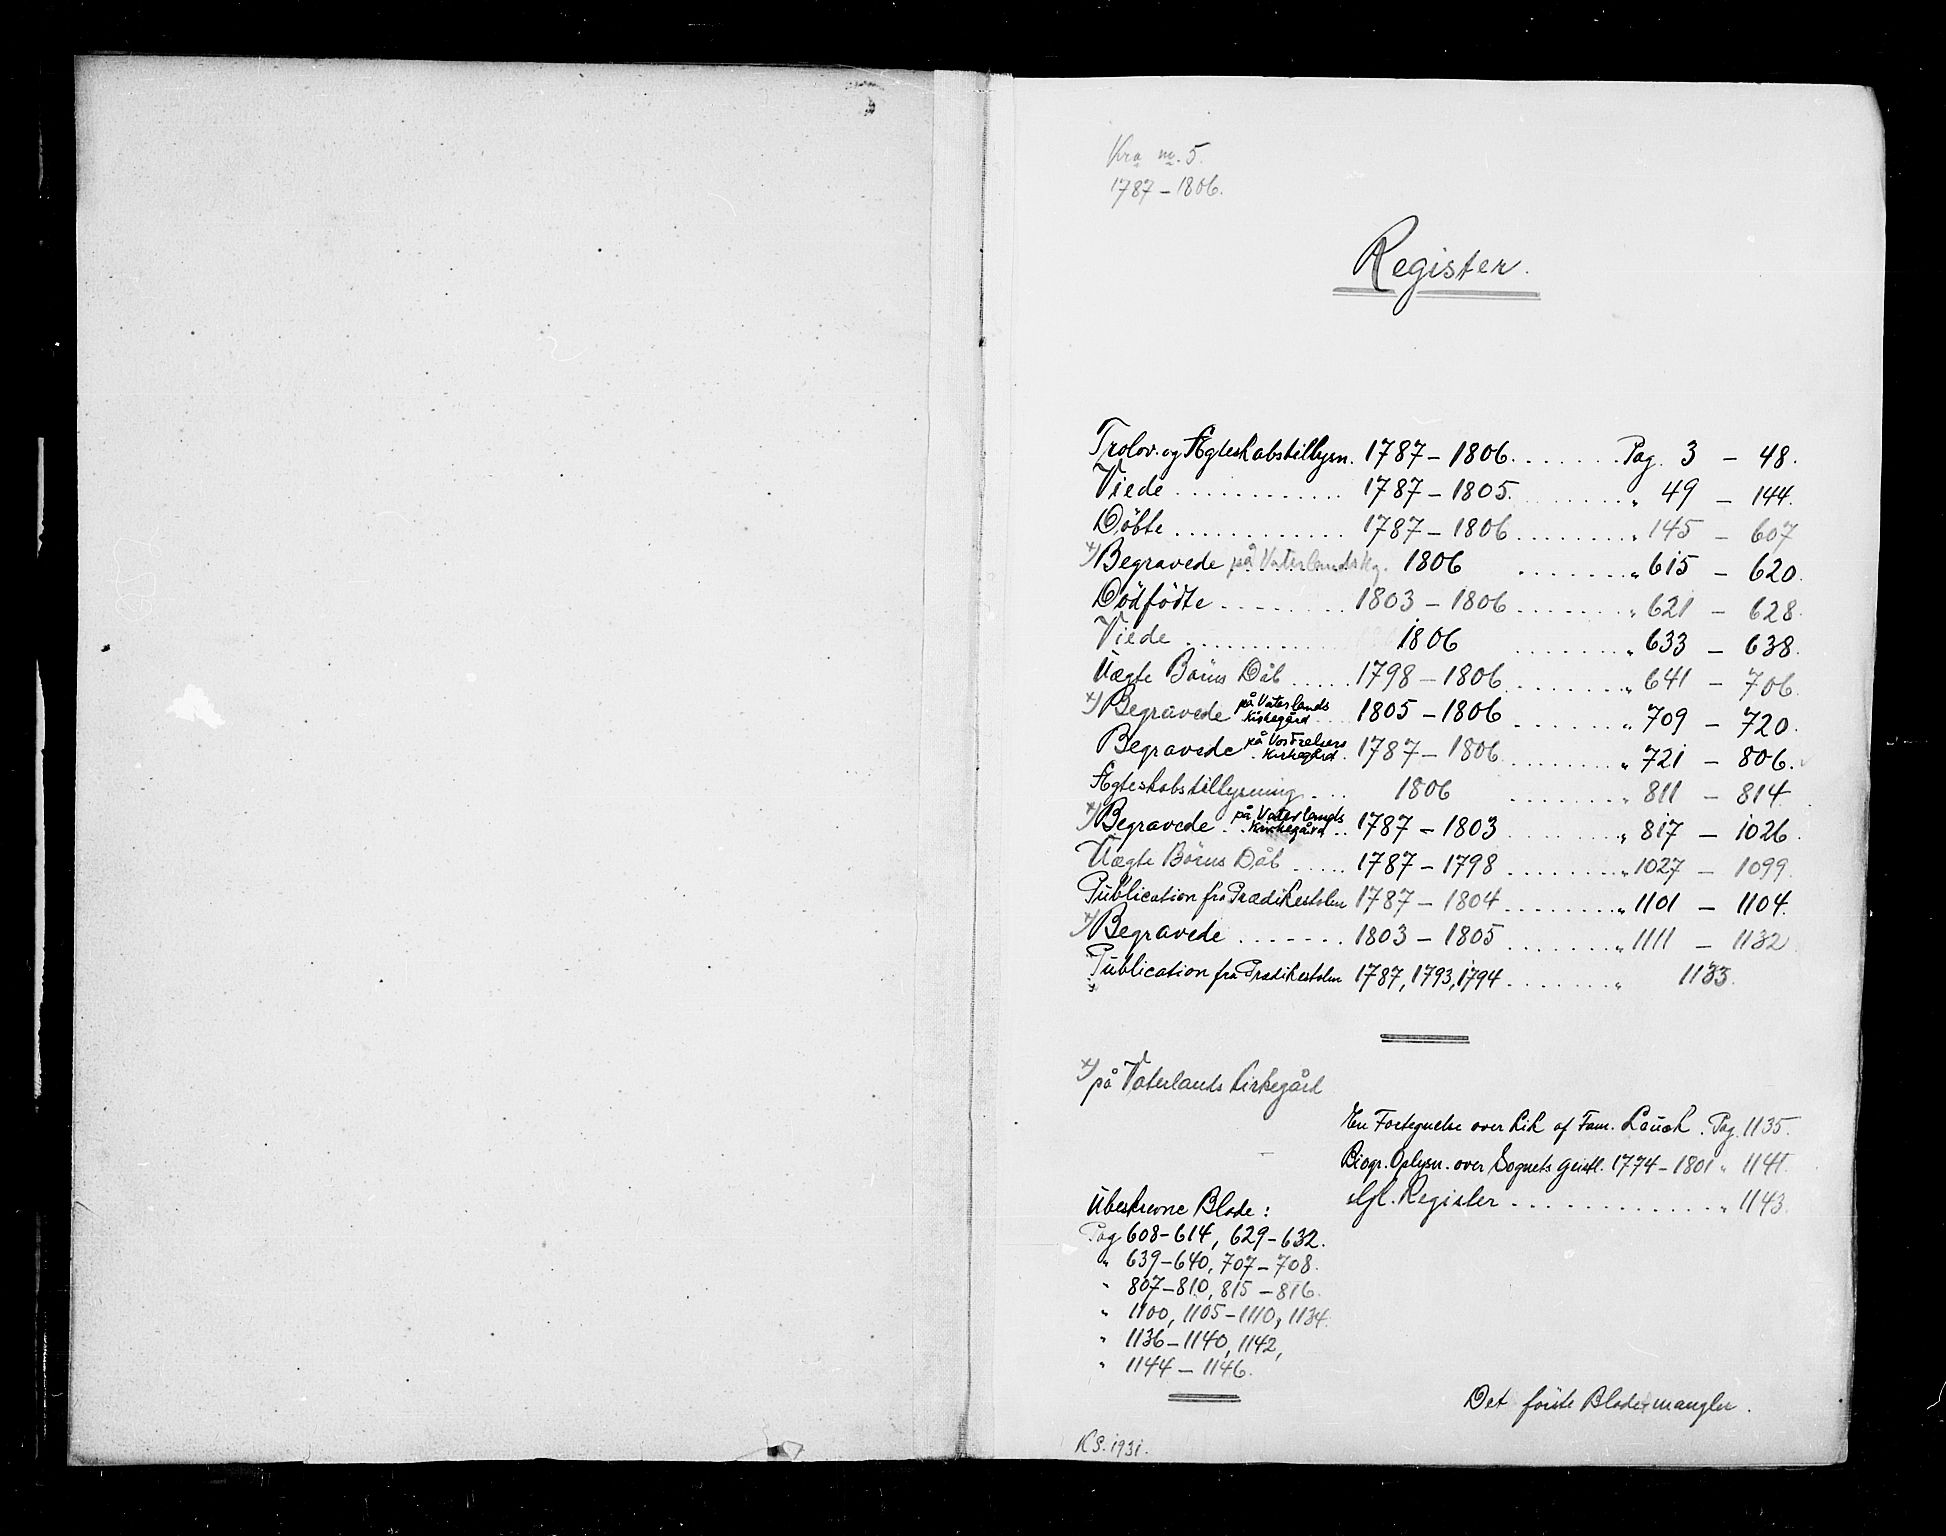 Kra nr. 5.
1787 – 1806.
Register.
Trolov. og Ægteskabstillysn. 1787 – 1806. . . . . . . . Pag. 3 – 48.
Viede . . . . . . . . . . . . 1787 – 1805. . . . . . . . " 49 – 144.
Döbte . . . . . . . . . . . . 1787 – 1806 . . . . . . . . " 145 – 607
x) Begravede på Vaterlands Kg. 1806 . . . . . . . . " 615 – 620.
Dödfödte . . . . . . . . 1803 – 1806 . . . . . . . . " 621 – 628.
Viede . . . . . . . . . . . . 1806 . . . . . . . . " 633 – 638.
Uægte Börns Dåb . . . . . 1798 – 1806 . . . . . . . . " 641 – 706.
x) Begravede på Vaterlands Kirkegård . . . 1805 – 1806 . . . . . . . . " 709 – 720.
Begravede på VorFrelsers Kirkegård . 1787 – 1806 . . . . . . . . " 721 – 806.
Ægteskabstillysning . . . 1806 . . . . . . . . " 811 – 814
x) Begravede . . på Vaterlands Kirkegård . . 1787 – 1803 . . . . . . . . " 817 – 1026.
Uægte Börns Dåb . . . . . 1787 – 1798 . . . . . . . . " 1027 – 1099.
Publication fra Prædikestolen 1787 – 1804 . . . . . . . . " 1101 – 1104.
x) Begravede . . . . . . . 1803 – 1805 . . . . . . . . " 1111 – 1132
Publication fra Prædikestolen 1787, 1793, 1794 . . . . . . . . " 1133.
x) på Vaterlands Kirkegård
En Fortegnelse over Lik af Fam. Leuch. Pag. 1135.
Biogr. Oplysn. over Sognets Geistl. 1774 – 1801 " 1141.
Gl. Register . . . . . . . . . . . . . " 1143.
Ubeskrevne Blade :
Pag 608–614, 629–632.
" 639–640, 707–708.
" 807–810, 815–816.
" 1100, 1105–1110, 1134.
" 1136–1140, 1142,
" 1144 – 1146.
Det förste Blad mangler.
KS. 1931.